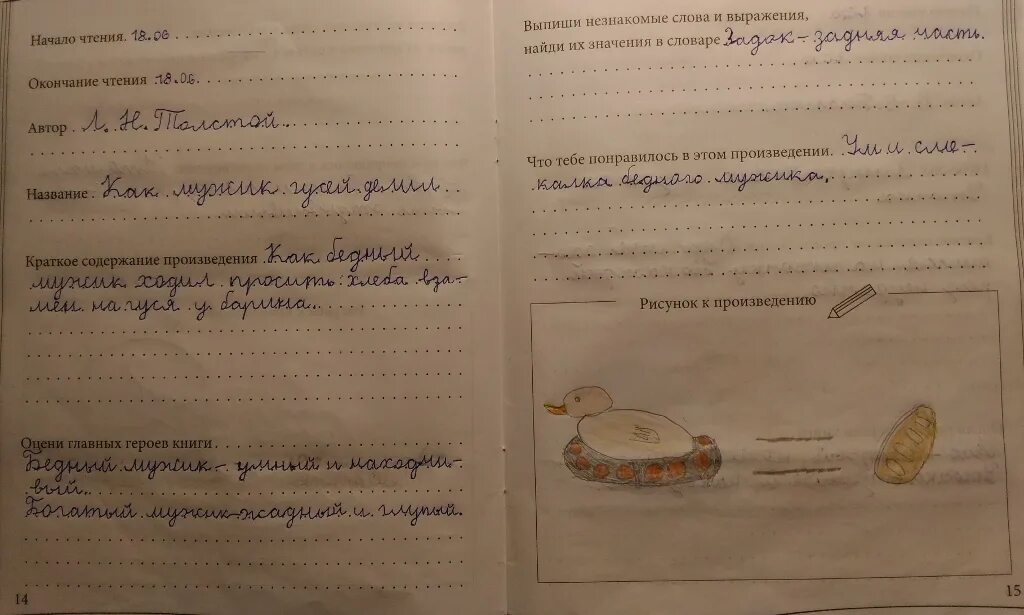 Начало чтения. 18.06
Окончание чтения 18.06.
Автор. Л. Н. Толстой.
Название. Как мужик гусей делил
Краткое содержание произведения Как бедный
мужик ходил просить хлеба вза-
мен на гуся у барина.
Оцени главных героев книги
Бедный мужик - умный и находчи-
вый.
Богатый мужик - жадный и глупый.
14
Выпиши незнакомые слова и выражения,
найди их значения в словаре Задок - задняя часть.
Что тебе понравилось в этом произведении. Ум и сме-
калка бедного мужика.
Рисунок к произведению
15